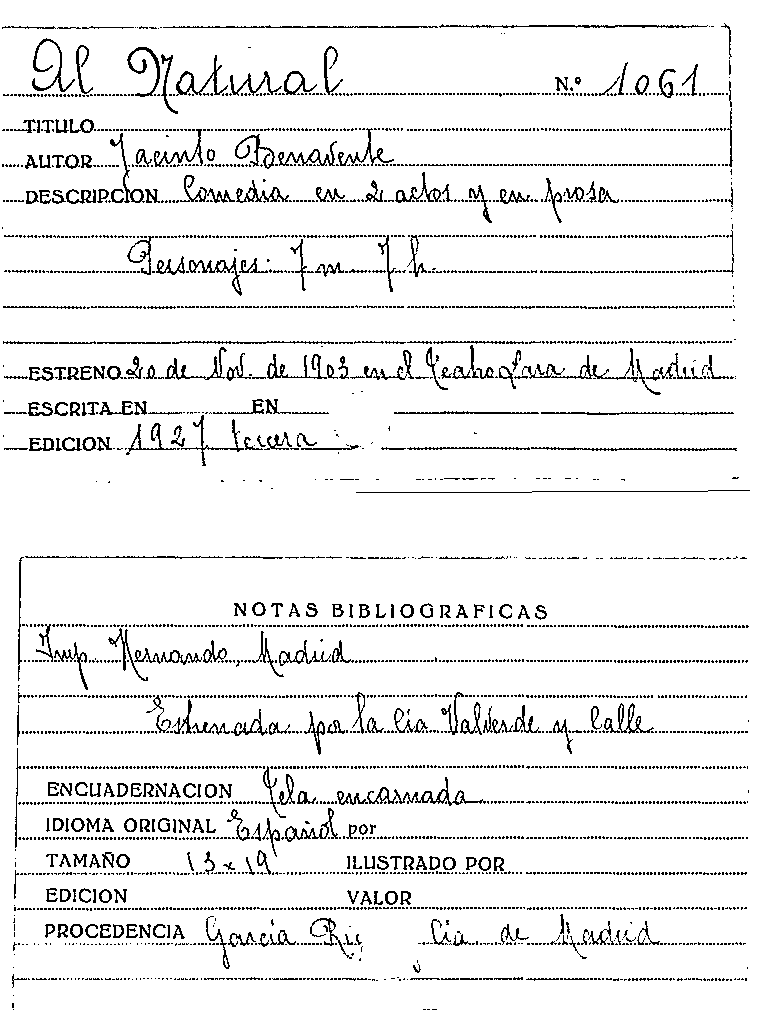 Al Natural N.º 1061
TITULO
AUTOR Jacinto Benavente
DESCRIPCION Comedia en 2 actos y en prosa
Personajes: 7 m. 7 h.
ESTRENO 20 de Nov. de 1903 en el Teatro Lara de Madrid
ESCRITA EN EN
EDICION 1927 tercera
NOTAS BIBLIOGRAFICAS
Imp. Hernando, Madrid
Estrenada por la Cia Valverde y Calle
ENCUADERNACION Tela encarnada
IDIOMA ORIGINAL Español por
TAMAÑO 13 x 19 ILUSTRADO POR
EDICION VALOR
PROCEDENCIA García Cia de Madrid